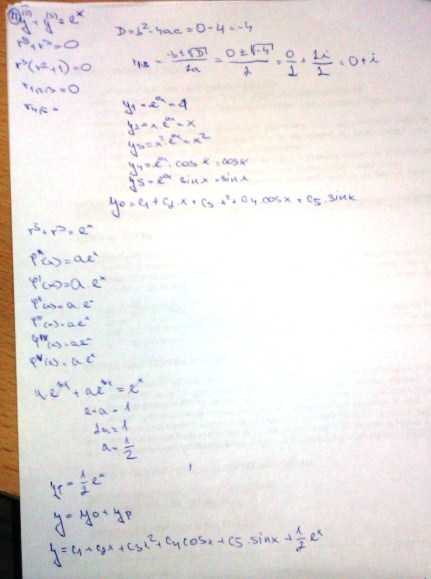 y⁽⁵⁾ + y⁽³⁾ = eˣ
r⁵ + r³ = 0
r³(r² + 1) = 0
r₁,₂,₃ = 0
r₄,₅ =
D = b² - 4ac = 0 - 4 = -4
r₄,₅ = (-b ± √D)/2a = (0 ± √-4)/2 = 0/2 ± 2i/2 = 0 ± i
y₁ = e⁰ˣ = 1
y₂ = x e⁰ˣ = x
y₃ = x² e⁰ˣ = x²
y₄ = e⁰ˣ · cos x = cos x
y₅ = e⁰ˣ sin x = sin x
y₀ = c₁ + c₂ x + c₃ x² + c₄ cos x + c₅ · sin x
r⁵ + r³ = eˣ
(x) = a eˣ
(x) = a eˣ
(x) = a eˣ
(x) = a eˣ
(x) = a eˣ
(x) = a eˣ
a eˣ + a eˣ = eˣ
a + a = 1
2a = 1
a = 1/2
yp = 1/2 eˣ
y = y₀ + yp
y = c₁ + c₂x + c₃x² + c₄ cos x + c₅ · sin x + 1/2 eˣ